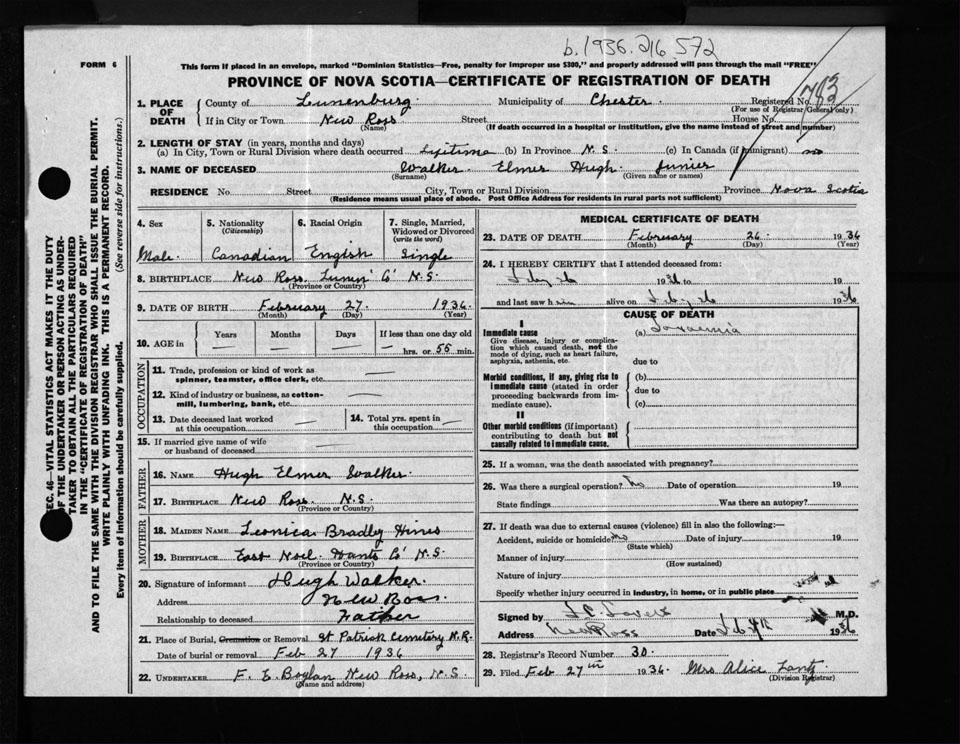 b. 1936. 216 572
FORM 6
This form if placed in an envelope, marked "Dominion Statistics—Free, penalty for improper use $300," and properly addressed will pass through the mail "FREE"
PROVINCE OF NOVA SCOTIA—CERTIFICATE OF REGISTRATION OF DEATH
SEC. 46—VITAL STATISTICS ACT MAKES IT THE DUTY
OF THE UNDERTAKER OR PERSON ACTING AS UNDER-
TAKER TO OBTAIN ALL THE PARTICULARS REQUIRED
IN THE "CERTIFICATE OF REGISTRATION OF DEATH"
AND TO FILE THE SAME WITH THE DIVISION REGISTRAR WHO SHALL ISSUE THE BURIAL PERMIT.
WRITE PLAINLY WITH UNFADING INK. THIS IS A PERMANENT RECORD.
Every item of information should be carefully supplied. (See reverse side for instructions.)
1. PLACE OF DEATH County of Lunenburg. Municipality of Chester. Registered No. 783
(For use of Registrar General only)
If in City or Town New Ross Street House No.
(Name) (If death occurred in a hospital or institution, give the name instead of street and number)
2. LENGTH OF STAY (in years, months and days)
(a) In City, Town or Rural Division where death occurred Lifetime (b) In Province N.S. (c) In Canada (if immigrant) no
3. NAME OF DECEASED Walker Elmer Hugh Junior
(Surname) (Given name or names)
RESIDENCE No. Street City, Town or Rural Division Province Nova Scotia
(Residence means usual place of abode. Post Office Address for residents in rural parts not sufficient)
4. Sex
Male.
5. Nationality
(Citizenship)
Canadian
6. Racial Origin
English
7. Single, Married,
Widowed or Divorced
(write the word)
Single
8. BIRTHPLACE New Ross Lunen' C' N.S.
(Province or Country)
9. DATE OF BIRTH February 27. 1936.
(Month) (Day) (Year)
10. AGE in Years Months Days If less than one day old
— — — — hrs. or 55 min.
OCCUPATION
11. Trade, profession or kind of work as
spinner, teamster, office clerk, etc. —
12. Kind of industry or business, as cotton-
mill, lumbering, bank, etc. —
13. Date deceased last worked
at this occupation —
14. Total yrs. spent in
this occupation —
15. If married give name of wife
or husband of deceased —
FATHER
16. NAME Hugh Elmer Walker.
17. BIRTHPLACE New Ross N.S.
(Province or Country)
MOTHER
18. MAIDEN NAME Leonica Bradley Hines
19. BIRTHPLACE East Noel Hants C' N.S.
(Province or Country)
20. Signature of informant Hugh Walker.
Address New Ross.
Relationship to deceased Father
21. Place of Burial, Cremation or Removal St Patrick Cemetery N.R.
Date of burial or removal Feb 27 1936
22. UNDERTAKER F. E. Boylan New Ross, N.S.
(Name and address)
MEDICAL CERTIFICATE OF DEATH
23. DATE OF DEATH February 26. 1936
(Month) (Day) (Year)
24. I HEREBY CERTIFY that I attended deceased from:
Feby 26 1936 to 19
and last saw him alive on Feby 26 1936
CAUSE OF DEATH
I
Immediate cause
Give disease, injury or complica-
tion which caused death, not the
mode of dying, such as heart failure,
asphyxia, asthenia, etc.
(a) Toxaemia
due to
Morbid conditions, if any, giving rise to
immediate cause (stated in order
proceeding backwards from im-
mediate cause).
(b)
due to
(c)
II
Other morbid conditions (if important)
contributing to death but not
causally related to immediate cause.
25. If a woman, was the death associated with pregnancy?
26. Was there a surgical operation? No Date of operation 19
State findings Was there an autopsy?
27. If death was due to external causes (violence) fill in also the following:—
Accident, suicide or homicide? No Date of injury 19
(State which)
Manner of injury
(How sustained)
Nature of injury
Specify whether injury occurred in industry, in home, or in public place
Signed by M.D.
Address New Ross Date 1936
28. Registrar's Record Number 30.
29. Filed Feb 27th 1936. Mrs Alice Lantz
(Division Registrar)